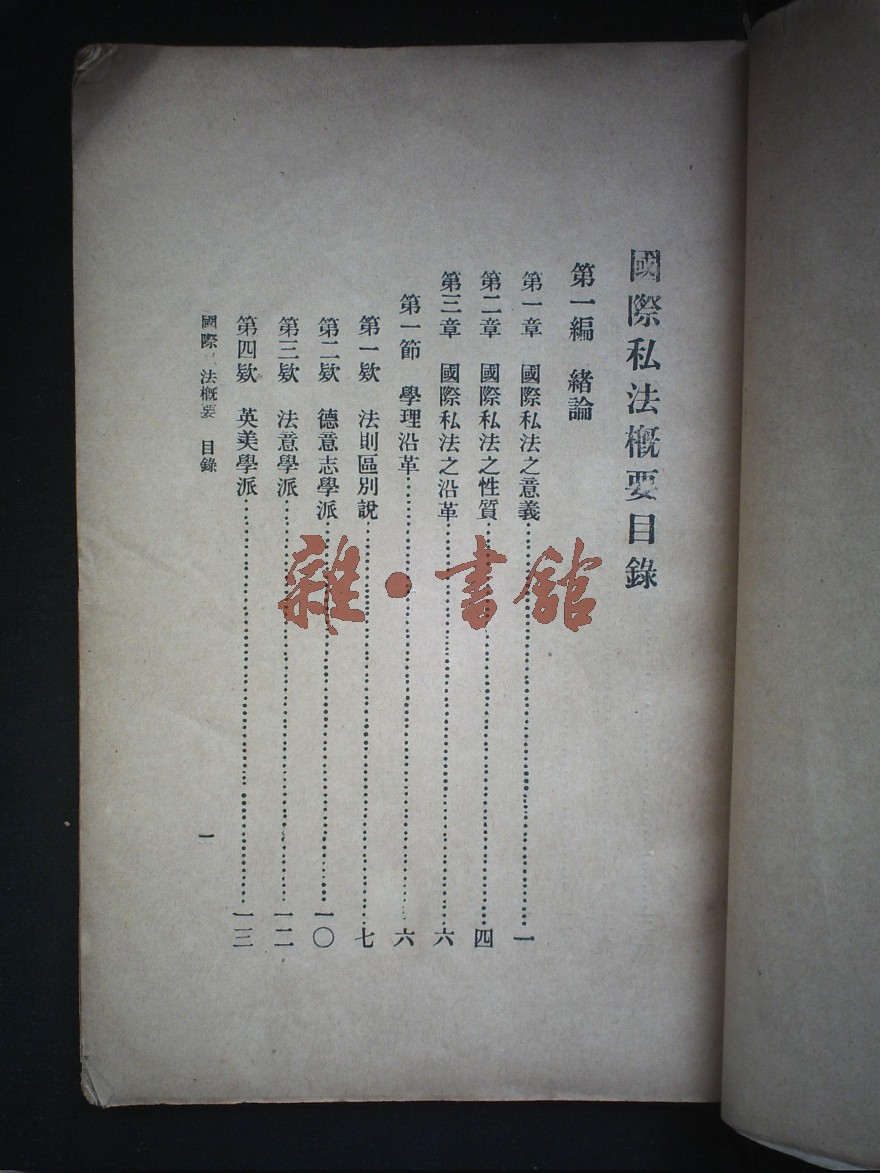 國際私法概要目錄
第一編 緒論
第一章 國際私法之意義……一
第二章 國際私法之性質……四
第三章 國際私法之沿革……六
第一節 學理沿革……六
第一欵 法則區別說……七
第二欵 德意志學派……一〇
第三欵 法意學派……一二
第四欵 英美學派……一三
國際 法概要 目錄
一
雜·書館